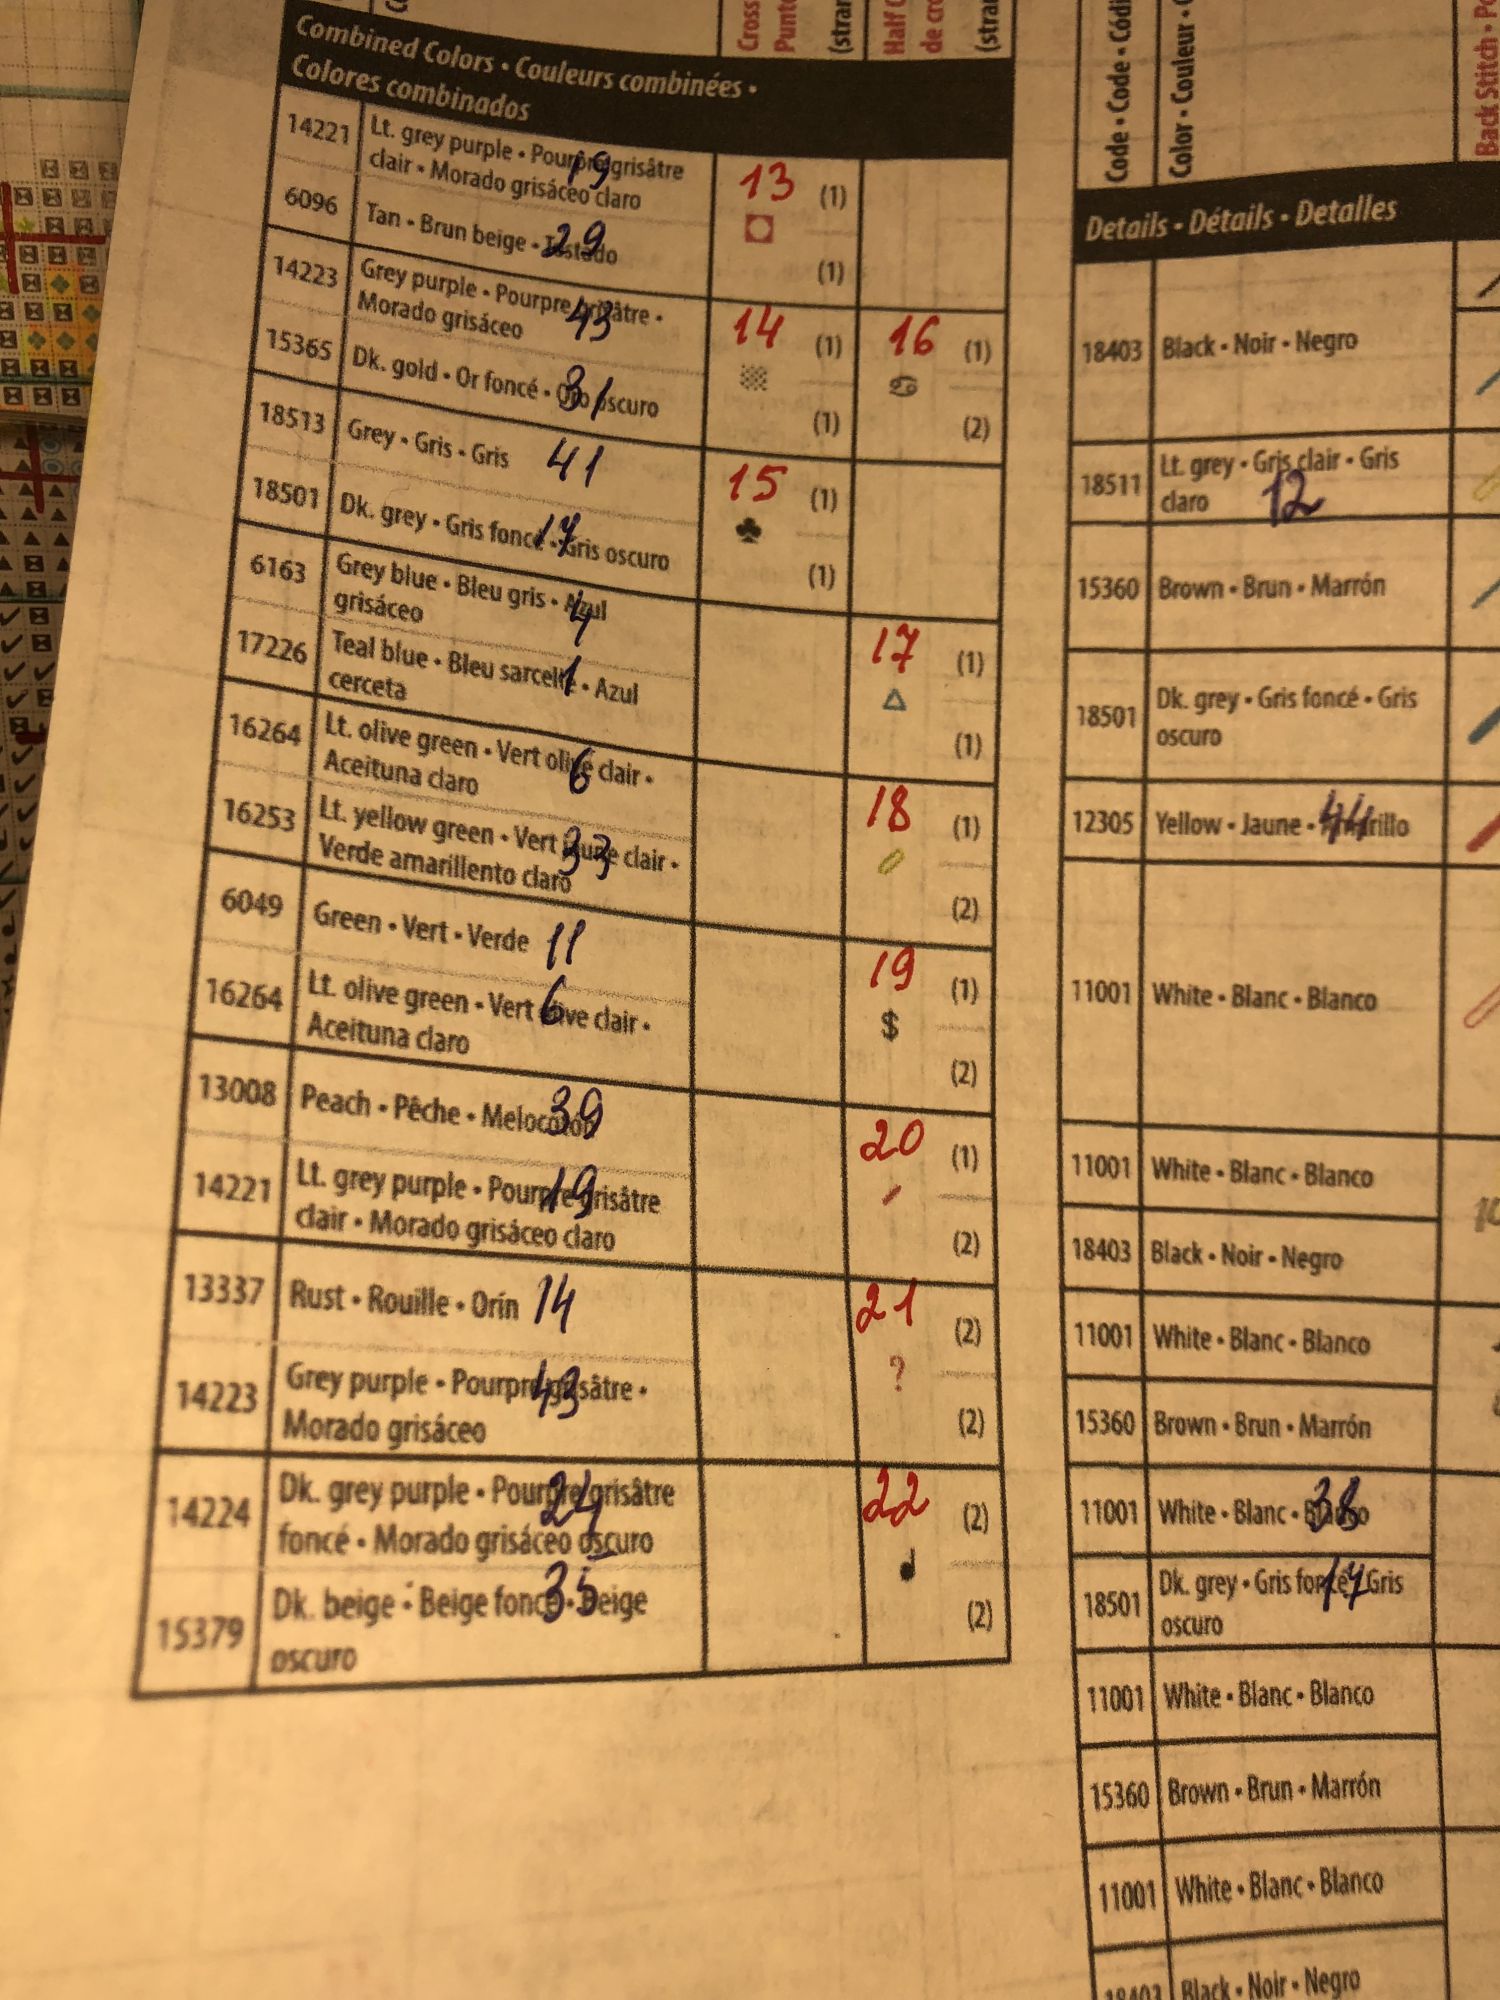 Cross
Punto
(stran
Half C
de cro
(stran
Combined Colors • Couleurs combinées •
Colores combinados
14221 Lt. grey purple • Pourpre grisâtre 19
clair • Morado grisáceo claro
13 (1)
6096 Tan • Brun beige • Tostado 29
(1)
14223 Grey purple • Pourpre grisâtre • 43
Morado grisáceo
14 (1) 16 (1)
15365 Dk. gold • Or foncé • Oro oscuro 31
(1) (2)
18513 Grey • Gris • Gris 41
15 (1)
18501 Dk. grey • Gris foncé • Gris oscuro 17
(1)
6163 Grey blue • Bleu gris • Azul 4
grisáceo
17 (1)
17226 Teal blue • Bleu sarcelle • Azul 1
cerceta
(1)
16264 Lt. olive green • Vert olive clair • 6
Aceituna claro
18 (1)
16253 Lt. yellow green • Vert jaune clair • 33
Verde amarillento claro
(2)
6049 Green • Vert • Verde 11
19 (1)
16264 Lt. olive green • Vert olive clair • 6
Aceituna claro
$ (2)
13008 Peach • Pêche • Melocotón 39
20 (1)
14221 Lt. grey purple • Pourpre grisâtre 19
clair • Morado grisáceo claro
(2)
13337 Rust • Rouille • Orín 14
21 (2)
?
14223 Grey purple • Pourpre grisâtre • 43
Morado grisáceo
(2)
14224 Dk. grey purple • Pourpre grisâtre 24
foncé • Morado grisáceo oscuro
22 (2)
15379 Dk. beige • Beige foncé • Beige 35
oscuro
(2)
Code • Code • Códi
Color • Couleur • C
Back Stitch • Po
Details • Détails • Detalles
18403 Black • Noir • Negro
18511 Lt. grey • Gris clair • Gris
claro 12
15360 Brown • Brun • Marrón
18501 Dk. grey • Gris foncé • Gris
oscuro
12305 Yellow • Jaune • Amarillo 44
11001 White • Blanc • Blanco
11001 White • Blanc • Blanco
18403 Black • Noir • Negro
11001 White • Blanc • Blanco
15360 Brown • Brun • Marrón
11001 White • Blanc • Blanco 38
18501 Dk. grey • Gris foncé • Gris 17
oscuro
11001 White • Blanc • Blanco
15360 Brown • Brun • Marrón
11001 White • Blanc • Blanco
18403 Black • Noir • Negro